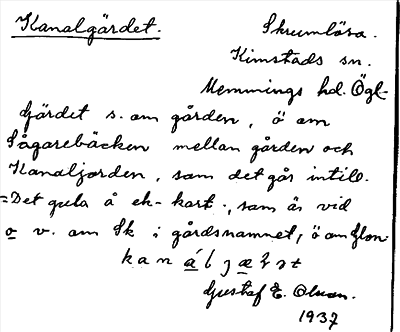 Kanalgärdet. Skrumlösa.
Kimstads sn.
Memmings hd. Ögl-
Gärdet s. om gården, ö om
Sågarebäcken mellan gården och
Kanaljorden, som det går intill.
=Det gula å ek-kart., som är vid
o v. om Sk i gårdsnamnet, ö om
Gustaf E. Olsson.
1937